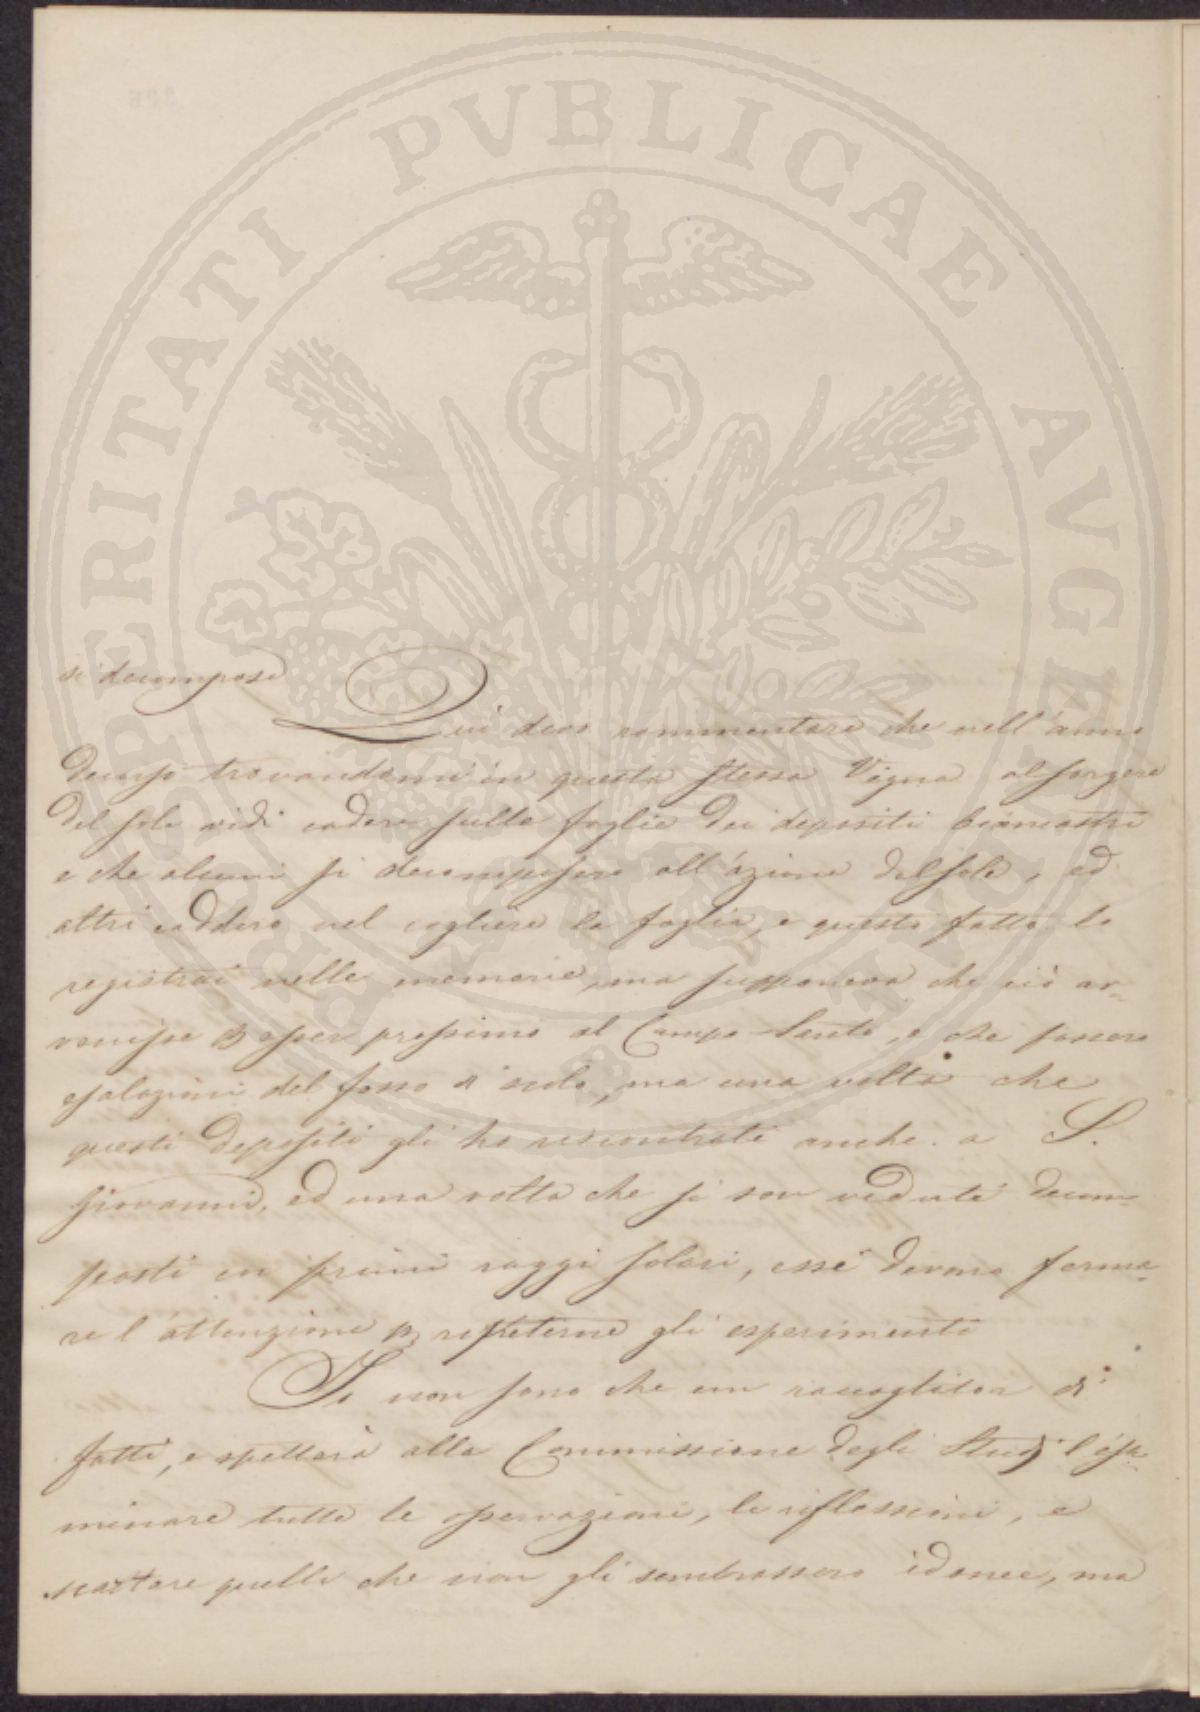 PROSPERITATI PVBLICAE AVGENDAE
si decompose
Quì devo rammentare che nell'anno
decorso trovandomi in questa stessa Vigna al sorgere
del sole vidi cadere sulle foglie dei depositi biancastri
e che alcuni si decomposero all'azione del sole, ed
altri caddero nel cogliere la foglia, e questo fatto lo
registrai nelle memorie, ma supponeva che ciò av=
venisse p esser prossimo al Campo Santo, e che fossero
esalazioni del fosso di scolo, ma una volta che
questi depositi gli ho riscontrati anche a S.
Giovanni, ed una volta che si son veduti decom=
posti ai primi raggi solari, essi devono ferma=
re l'attenzione p ripeterne gli esperimenti
Io non sono che un raccoglitor di
fatti, e spetterà alla Commissione degli Studj l'esa=
minare tutte le osservazioni, le riflessioni, e
scartare quelle che non gli sembrassero idonee, ma